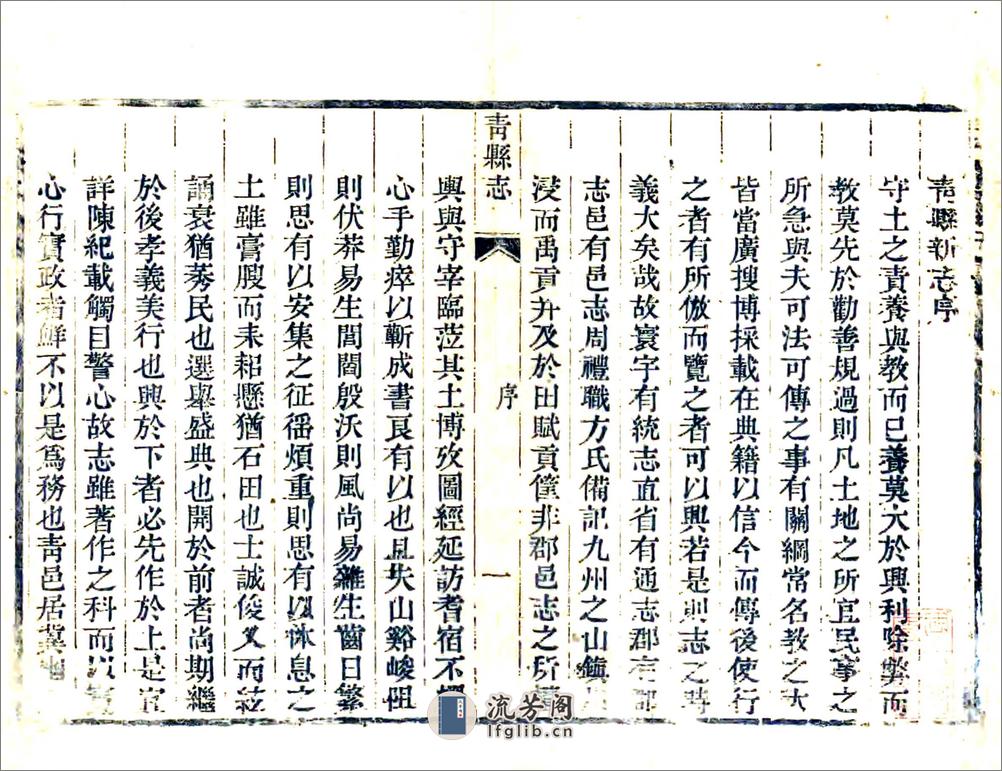 青縣新志序
守土之責養與教而已養莫大於興利除弊而
教莫先於勸善規過則凡土地之所宜民事之
所急與夫可法可傳之事有關綱常名教之大
皆當廣搜博採載在典籍以信今而傳後使行
之者有所倣而覽之者可以興若是則志之時
義大矣哉故寰宇有統志直省有通志郡有郡
志邑有邑志周禮職方氏備記九州之山鎮
浸而禹貢并及於田賦貢篚非郡邑志之所
青縣志
序
一
輿與守宰臨蒞其土博攷圖經延訪耆宿不
心手勤瘁以蘄成書良有以也且夫山谿峻阻
則伏莽易生閭閻殷沃則風尚易雜生齒日繁
則思有以安集之征徭煩重則思有以休息之
土雖膏腴而耒耜懸猶石田也士誠俊乂而
誦衰猶莠民也選舉盛典也開於前者尚期繼
於後孝義美行也興於下者必先作於上是宜
詳陳紀載觸目警心故志雖著作之科而
心行實政者鮮不以是為務也青邑居冀
流芳阁
lfglib.cn